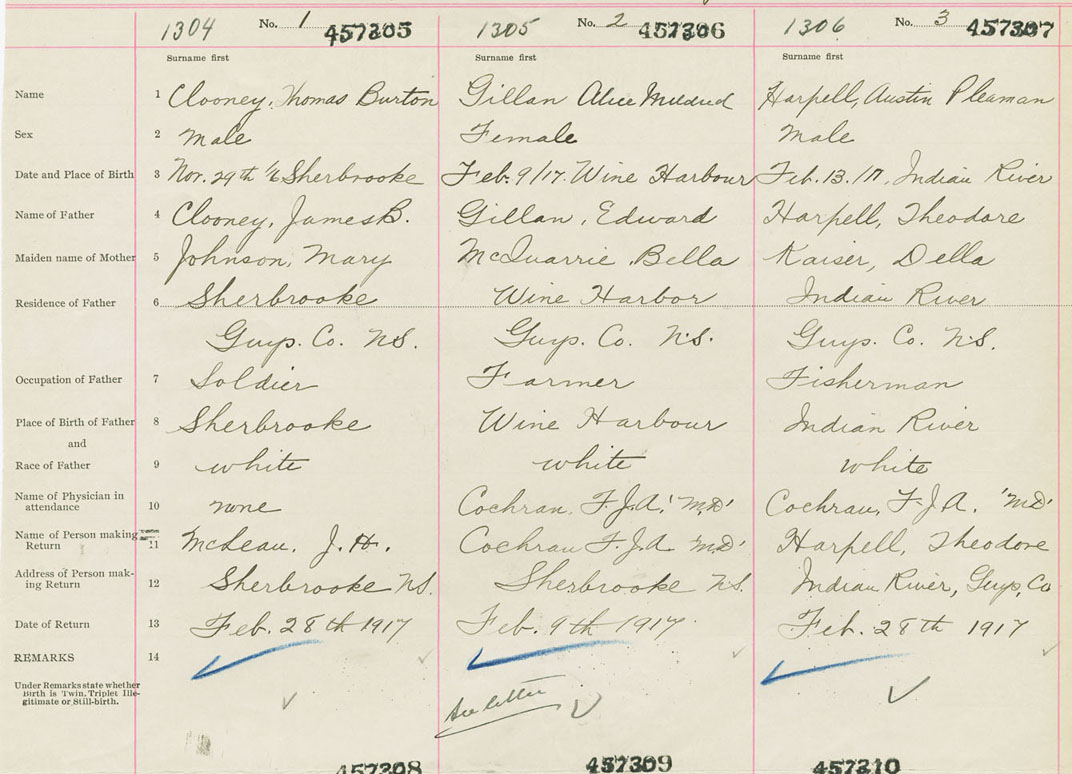 1304 No. 1 457305 1305 No. 2 457306 1306 No. 3 457307
Surname first Surname first Surname first
Name 1 Clooney, Thomas Burton Gillan Alice Mildred Harpell, Austin Pleaman
Sex 2 Male Female Male
Date and Place of Birth 3 Nov. 29th '16 Sherbrooke Feb. 9/17. Wine Harbour Feb. 13./17, Indian River
Name of Father 4 Clooney, James B. Gillan, Edward Harpell, Theodore
Maiden name of Mother 5 Johnson, Mary McQuarrie, Bella Kaiser, Della
Residence of Father 6 Sherbrooke Wine Harbor Indian River
Guys. Co. N.S. Guys. Co. N.S. Guys. Co. N.S.
Occupation of Father 7 Soldier Farmer Fisherman
Place of Birth of Father 8 Sherbrooke Wine Harbour Indian River
and
Race of Father 9 white white white
Name of Physician in
attendance 10 none Cochran, F.J.A. 'M.D.' Cochran, F.J.A. 'M.D.'
Name of Person making
Return 11 McLean, J. H. Cochran F.J.A. 'M.D.' Harpell, Theodore
Address of Person mak-
ing Return 12 Sherbrooke N.S. Sherbrooke N.S. Indian River, Guys, Co
Date of Return 13 Feb. 28th 1917 Feb. 9th 1917. Feb. 28th 1917
REMARKS 14
Under Remarks state whether
Birth is Twin, Triplet Ille-
gitimate or Still-birth.
See letter
457308 457309 457310